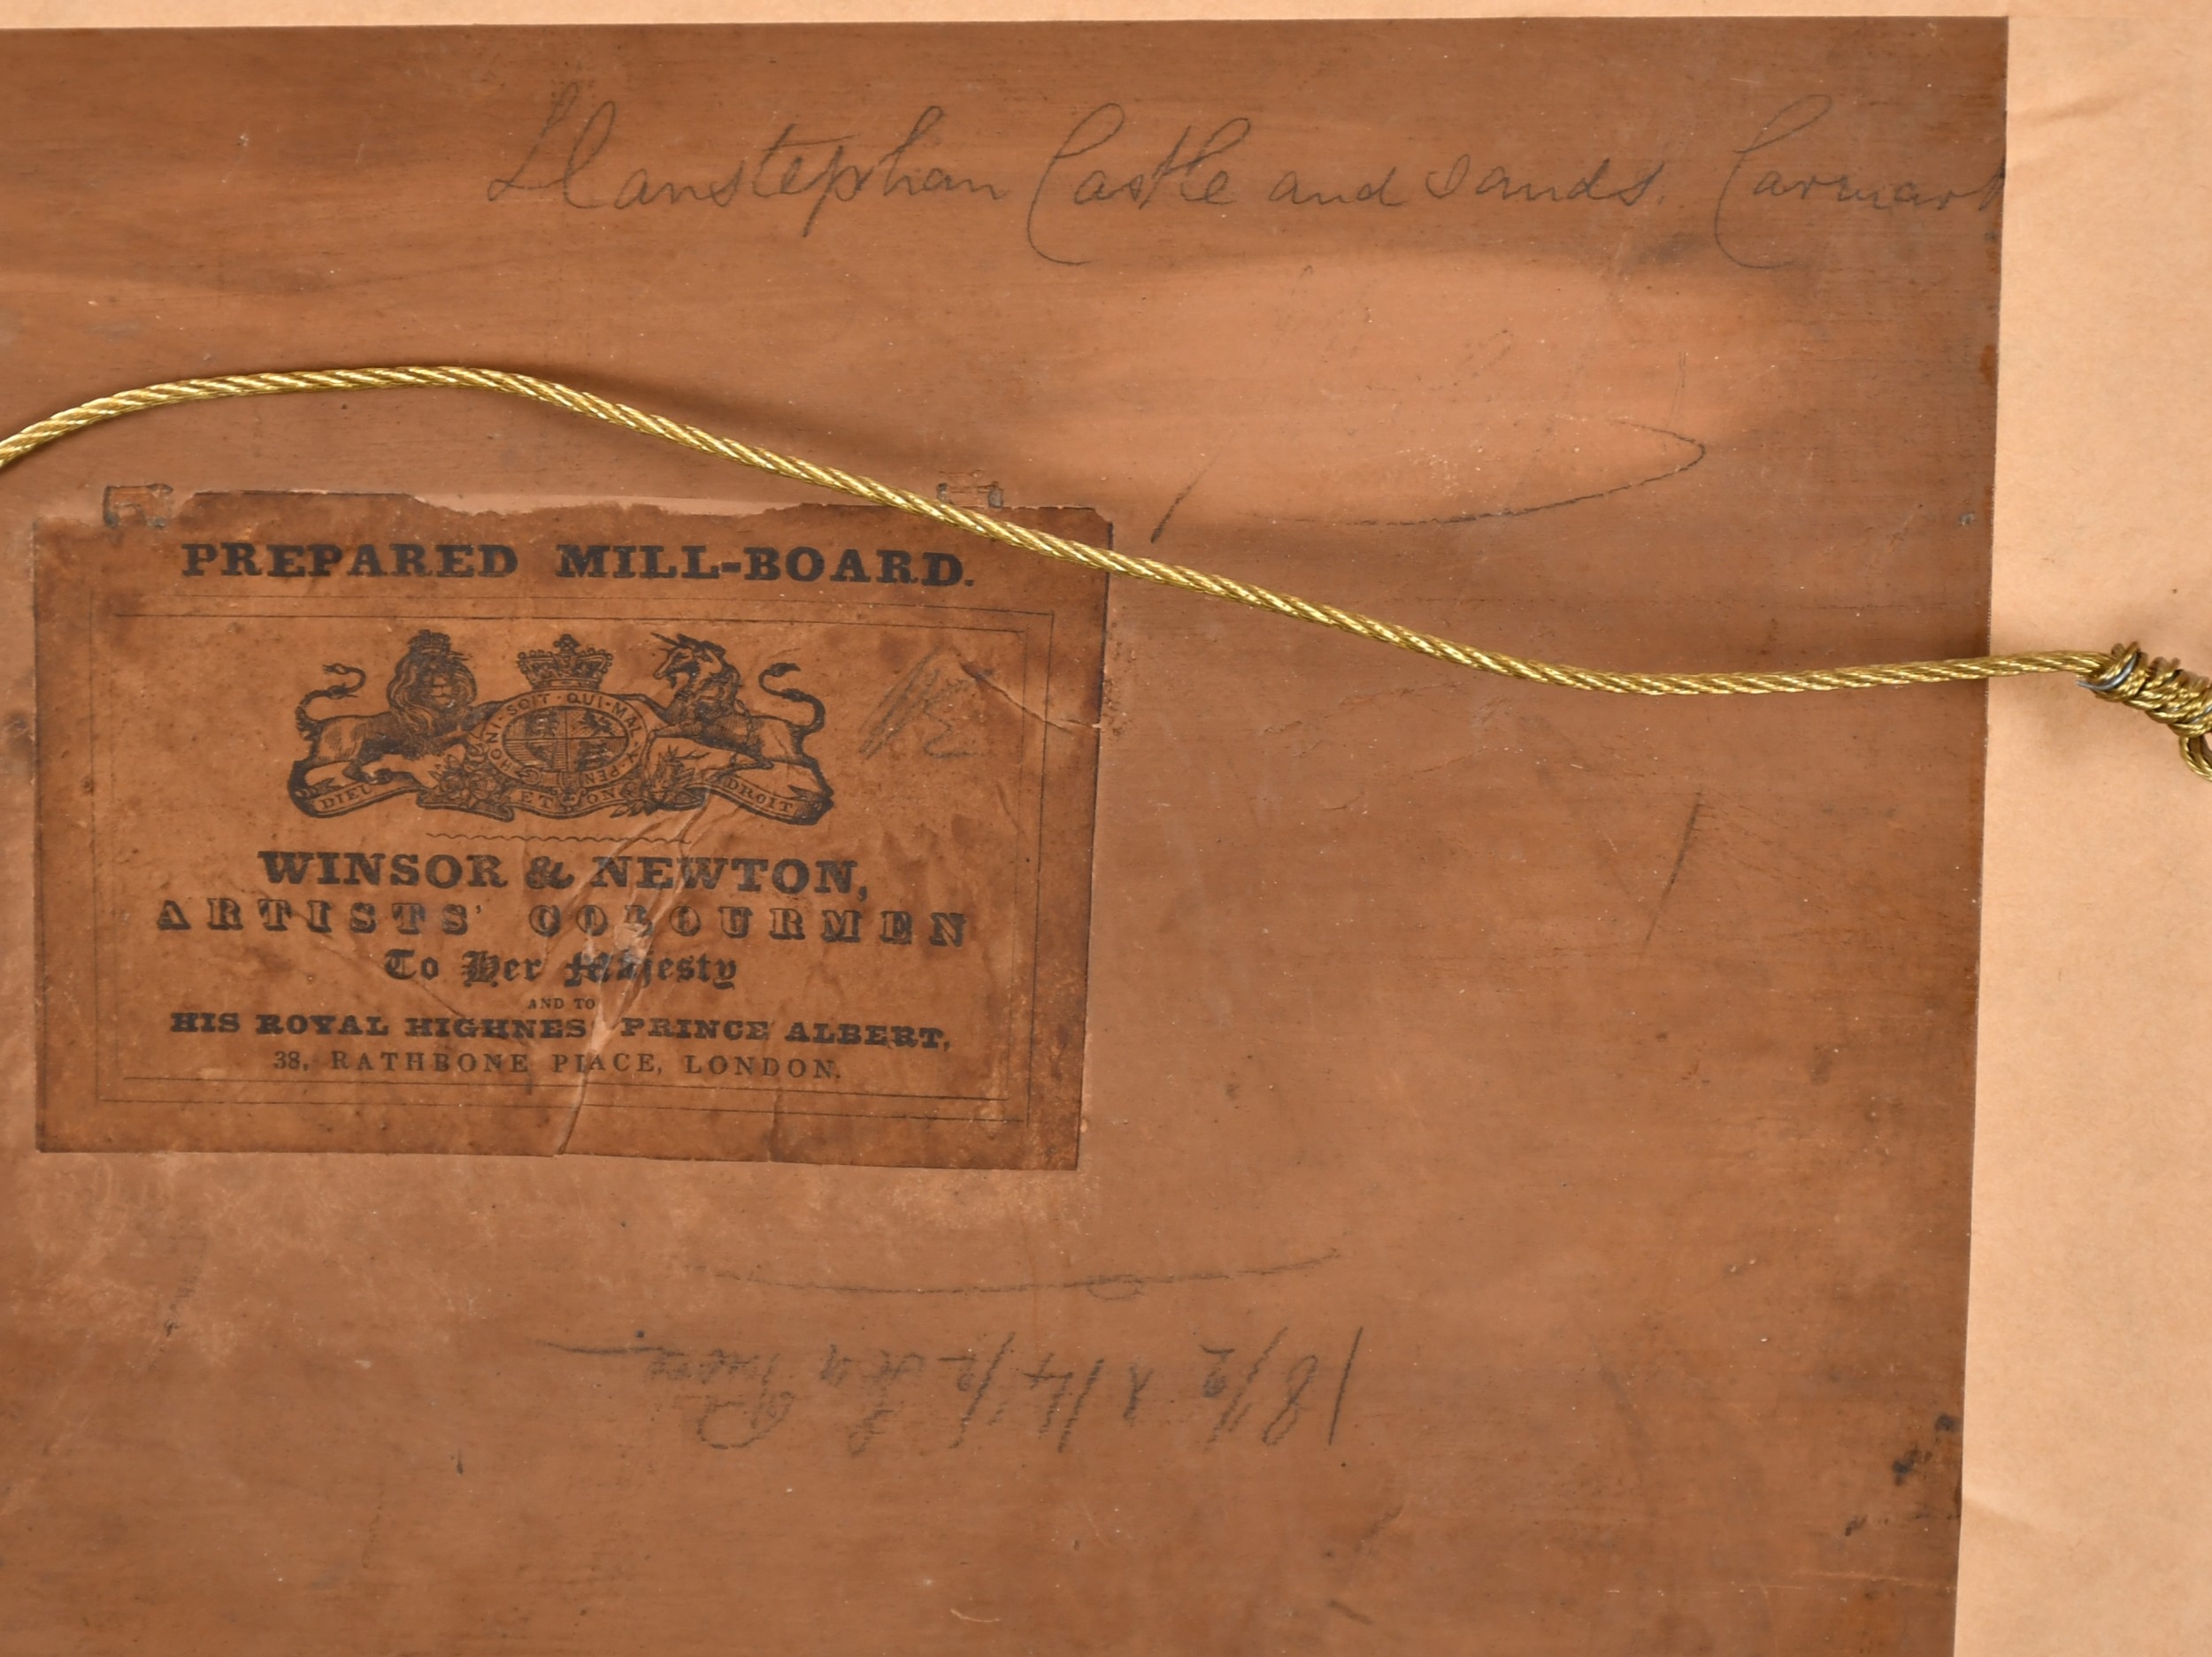 Llanstephan Castle and Sands. Carmart
PREPARED MILL-BOARD.
HONI·SOIT·QUI·MAL·Y·PEN
DIEU ET MON DROIT
WINSOR & NEWTON,
ARTISTS' COLOURMEN
To Her Majesty
AND TO
HIS ROYAL HIGHNESS PRINCE ALBERT,
38, RATHBONE PLACE, LONDON.
18 1/2 x 14 1/2